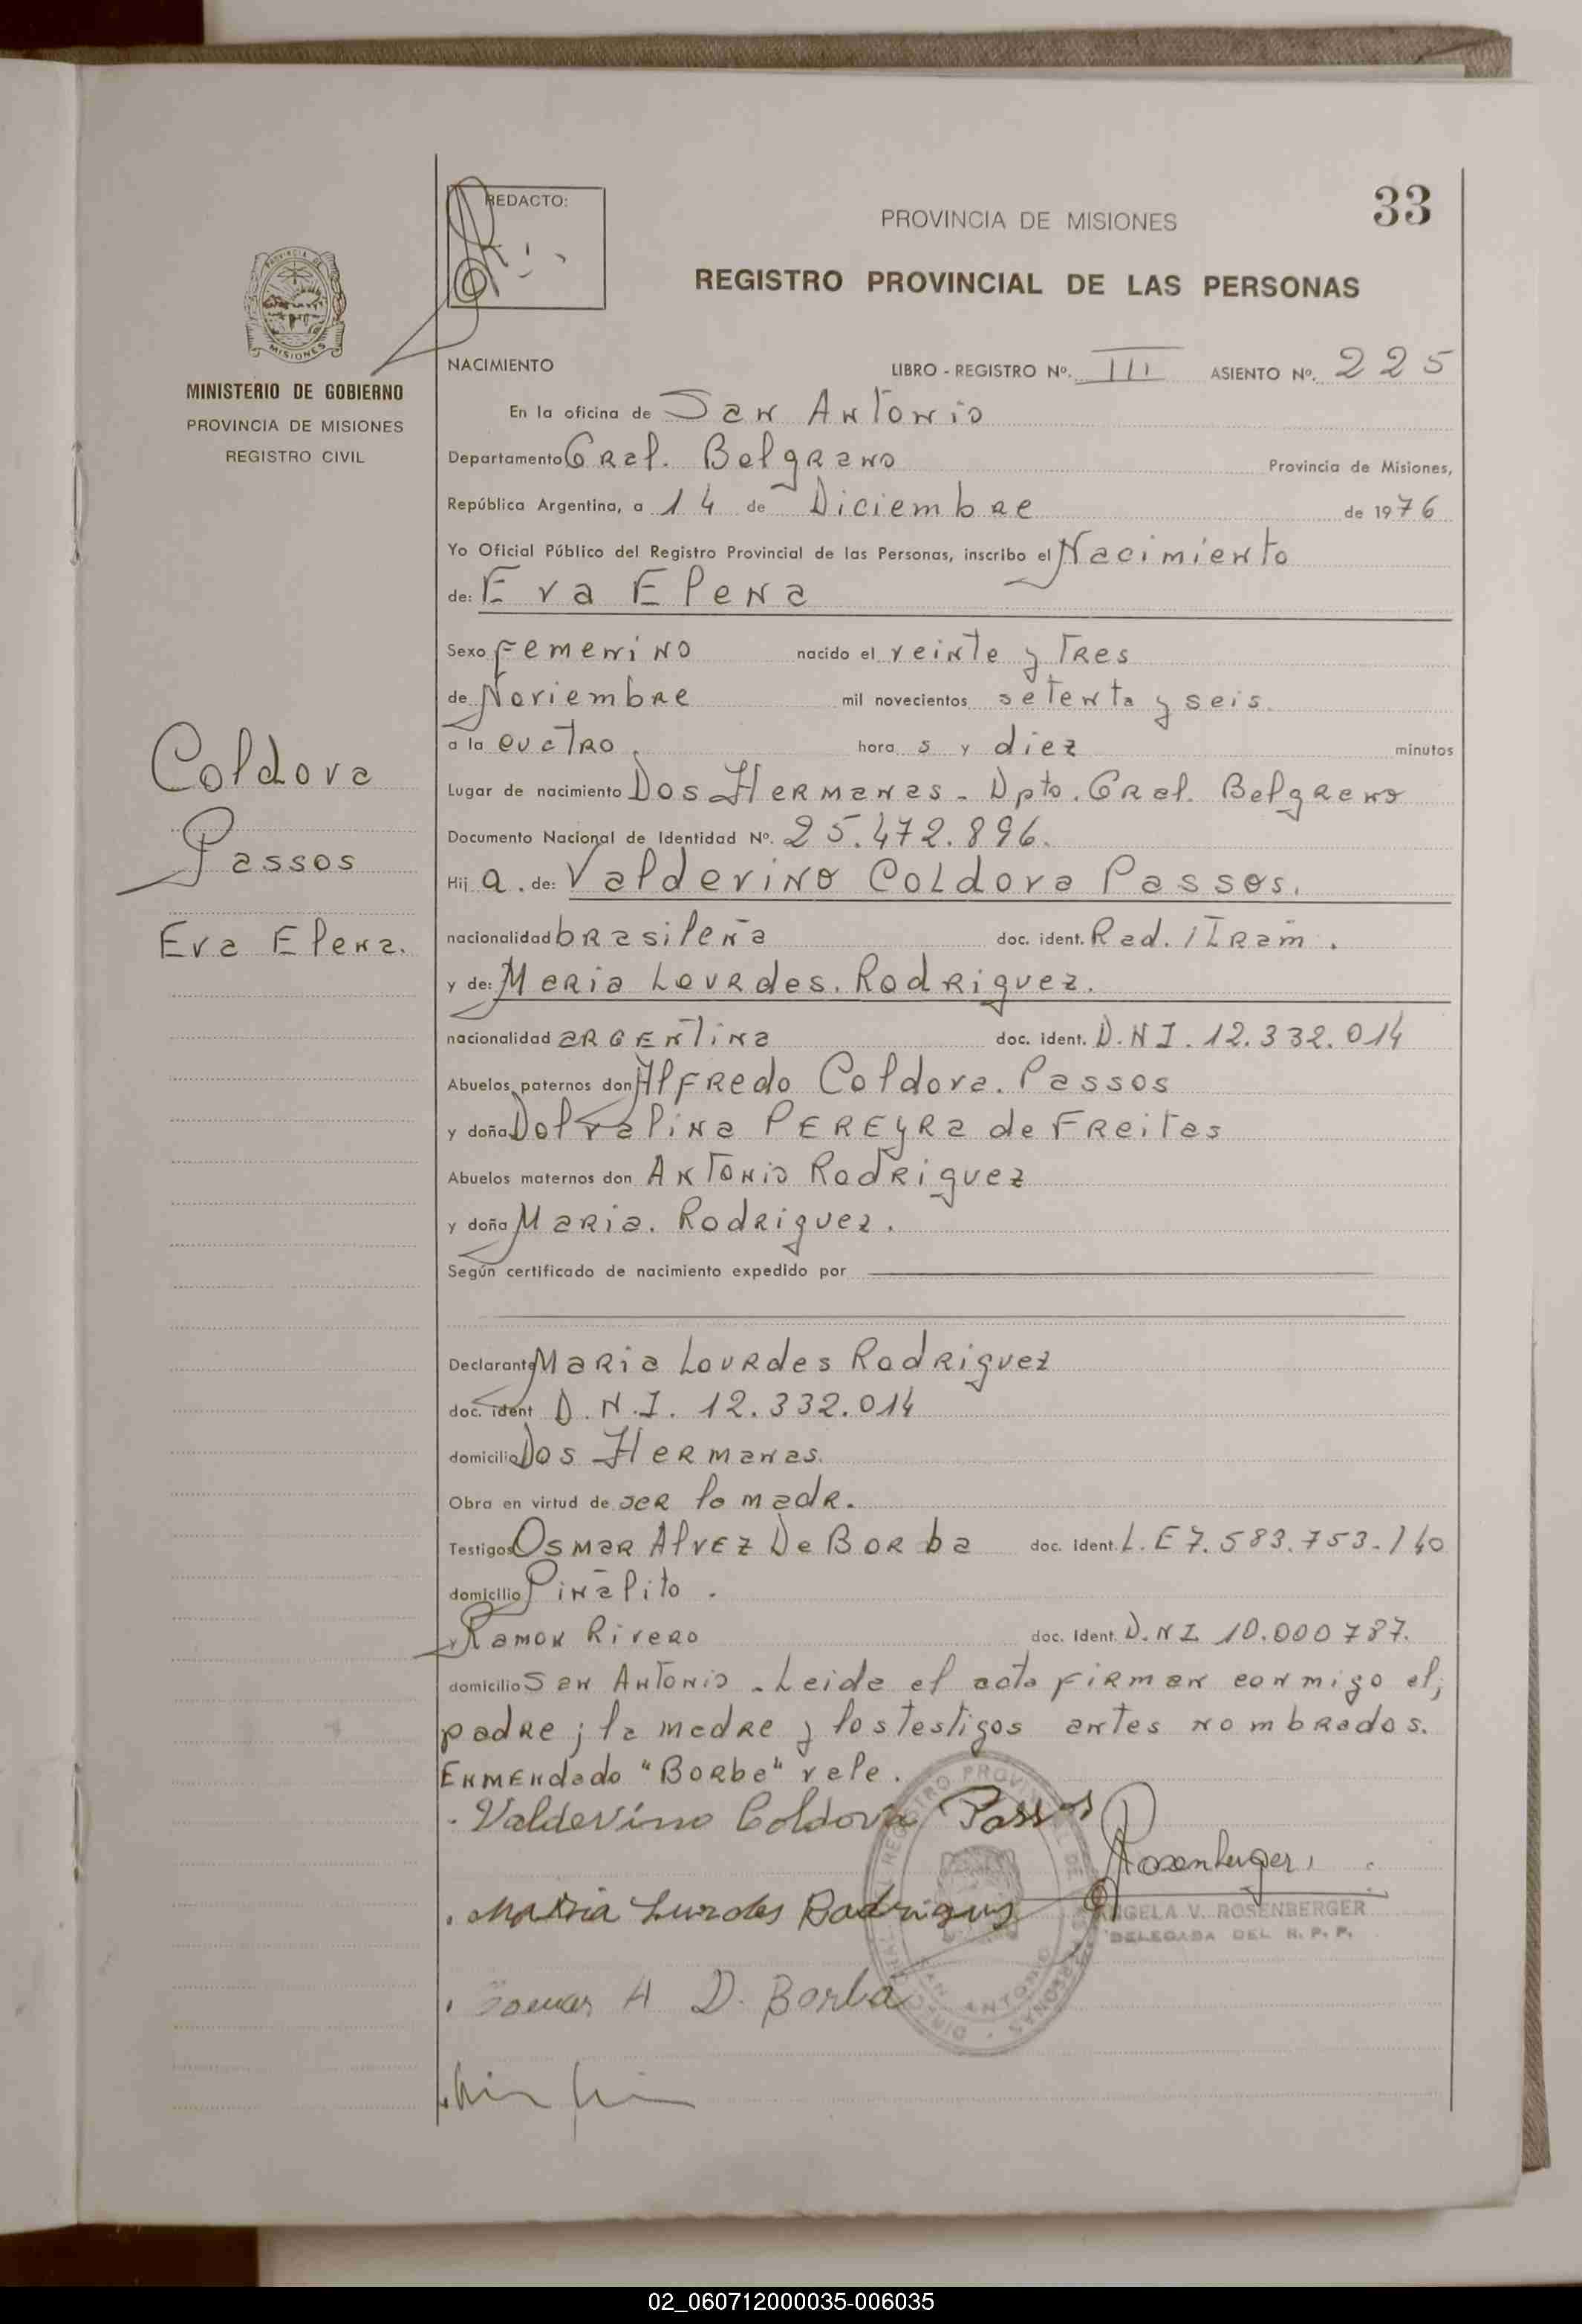 33
REDACTO:
PROVINCIA DE MISIONES
REGISTRO PROVINCIAL DE LAS PERSONAS
PROVINCIA DE
MISIONES
MINISTERIO DE GOBIERNO
PROVINCIA DE MISIONES
REGISTRO CIVIL
Coldova
Passos
Eva Elena.
NACIMIENTO LIBRO - REGISTRO Nº. III ASIENTO Nº. 225
En la oficina de San Antonio
Departamento Gral. Belgrano Provincia de Misiones,
República Argentina, a 14 de Diciembre de 1976
Yo Oficial Público del Registro Provincial de las Personas, inscribo el Nacimiento
de: Eva Elena
Sexo Femenino nacido el veinte y Tres
de Noviembre mil novecientos setenta y seis.
a la cuatro. hora s y diez minutos
Lugar de nacimiento Dos Hermanas - Dpto. Gral. Belgrano
Documento Nacional de Identidad Nº. 25.472.896.
Hij a. de: Valdevino Coldova Passos.
nacionalidad brasileña doc. ident. Rad. /Tram.
y de: Maria Lourdes. Rodriguez.
nacionalidad argentina doc. ident. D.N.I. 12.332.014
Abuelos paternos don Alfredo Coldova. Passos
y doña Dolvalina Pereyra de Freitas
Abuelos maternos don Antonio Rodriguez
y doña Maria. Rodriguez.
Según certificado de nacimiento expedido por
Declarante Maria Lourdes Rodriguez
doc. ident D.N.I. 12.332.014
domicilio Dos Hermanas.
Obra en virtud de ser la madr.
Testigos Osmar Alvez De Borba doc. ident. L.E 7.583.753-140
domicilio Piñalito.
y Ramon Rivero doc. ident. D.N.I 10.000787.
domicilio San Antonio - Leida el acta firman conmigo el;
padre; la madre y los testigos antes nombrados.
Enmendado "Borba" vale.
Valdevino Coldova Passos
Rosenberger
Maria Lurdes Rodrigues
ANGELA V. ROSENBERGER
DELEGADA DEL R. P. P.
A D. Borba
SAN ANTONIO
02_060712000035-006035